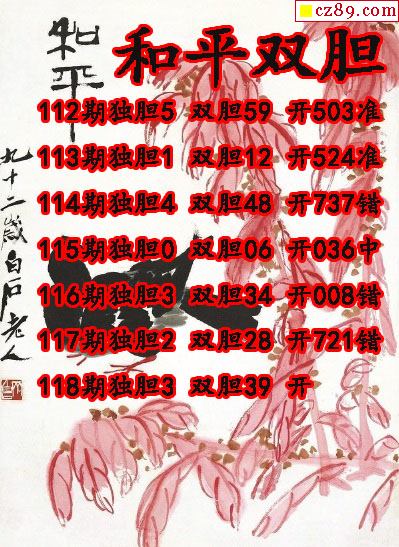 cz89.com
和平双胆
和平
九十二岁白石老人
112期独胆5 双胆59 开503准
113期独胆1 双胆12 开524准
114期独胆4 双胆48 开737错
115期独胆0 双胆06 开036中
116期独胆3 双胆34 开008错
117期独胆2 双胆28 开721错
118期独胆3 双胆39 开